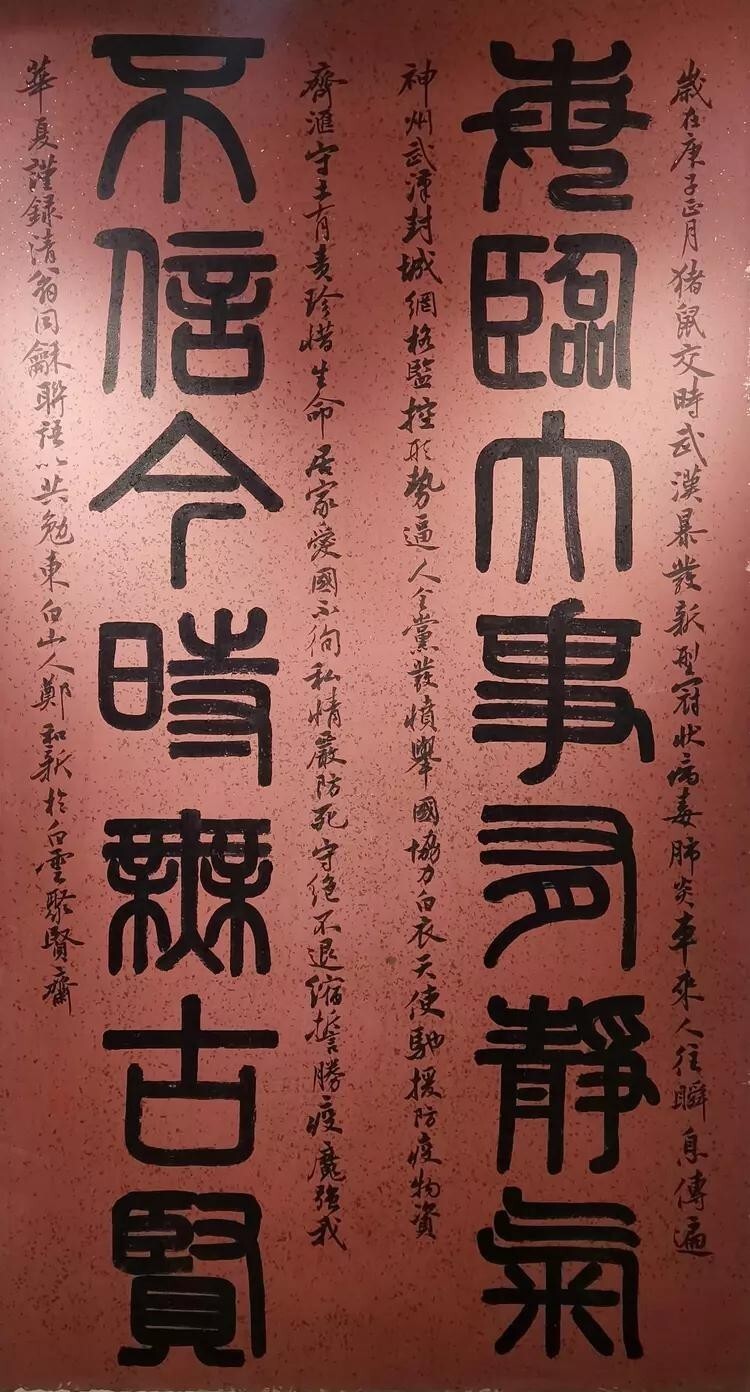 歲在庚子正月猪鼠交時武漢暴發新型冠狀病毒肺炎車來人往瞬息傳遍
每臨大事有靜氣
神州武漢封城網格監控形勢逼人全黨發憤舉國協力白衣天使馳援防疫物資
齊滙守土有責珍惜生命居家愛國不徇私情嚴防死守绝不退缩誓勝疫魔強我
不信今時無古賢
華夏謹録清翁同龢聯語以共勉東白山人鄭和新於白雲聚賢齋